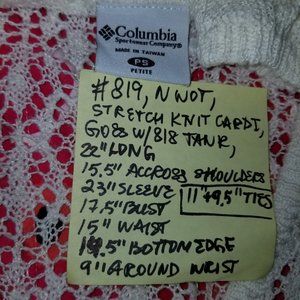 Columbia
Sportswear Company
MADE IN TAIWAN
PS
PETITE
#819, NWOT,
STRETCH KNIT CARDI,
GOES W/818 TANK,
22" LONG
15.5" ACCROSS SHOULDERS
23" SLEEVE
11"+9.5" TIES
17.5" BUST
15" WAIST
19.5" BOTTOM EDGE
9" AROUND WRIST